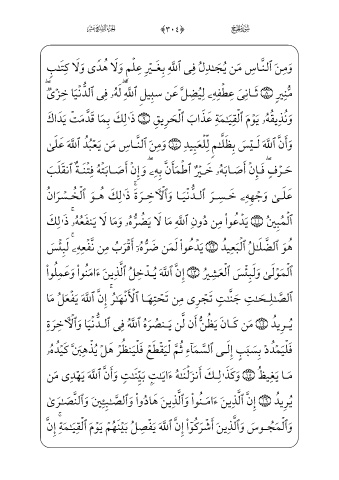 سورة الحج ﴿٣٠٤﴾ الجزء السابع عشر
وَمِنَ ٱلنَّاسِ مَن يُجَٰدِلُ فِى ٱللَّهِ بِغَيْرِ عِلْمٍ وَلَا هُدًى وَلَا كِتَٰبٍ
مُّنِيرٍ ثَانِىَ عِطْفِهِۦ لِيُضِلَّ عَن سَبِيلِ ٱللَّهِ ۖ لَهُۥ فِى ٱلدُّنْيَا خِزْىٌ ۖ
وَنُذِيقُهُۥ يَوْمَ ٱلْقِيَٰمَةِ عَذَابَ ٱلْحَرِيقِ ذَٰلِكَ بِمَا قَدَّمَتْ يَدَاكَ
وَأَنَّ ٱللَّهَ لَيْسَ بِظَلَّٰمٍ لِّلْعَبِيدِ وَمِنَ ٱلنَّاسِ مَن يَعْبُدُ ٱللَّهَ عَلَىٰ
حَرْفٍ ۖ فَإِنْ أَصَابَهُۥ خَيْرٌ ٱطْمَأَنَّ بِهِۦ ۖ وَإِنْ أَصَابَتْهُ فِتْنَةٌ ٱنقَلَبَ
عَلَىٰ وَجْهِهِۦ خَسِرَ ٱلدُّنْيَا وَٱلْـَٔاخِرَةَ ۚ ذَٰلِكَ هُوَ ٱلْخُسْرَانُ
ٱلْمُبِينُ يَدْعُوا۟ مِن دُونِ ٱللَّهِ مَا لَا يَضُرُّهُۥ وَمَا لَا يَنفَعُهُۥ ۚ ذَٰلِكَ
هُوَ ٱلضَّلَٰلُ ٱلْبَعِيدُ يَدْعُوا۟ لَمَن ضَرُّهُۥٓ أَقْرَبُ مِن نَّفْعِهِۦ ۚ لَبِئْسَ
ٱلْمَوْلَىٰ وَلَبِئْسَ ٱلْعَشِيرُ إِنَّ ٱللَّهَ يُدْخِلُ ٱلَّذِينَ ءَامَنُوا۟ وَعَمِلُوا۟
ٱلصَّٰلِحَٰتِ جَنَّٰتٍ تَجْرِى مِن تَحْتِهَا ٱلْأَنْهَٰرُ ۚ إِنَّ ٱللَّهَ يَفْعَلُ مَا
يُرِيدُ مَن كَانَ يَظُنُّ أَن لَّن يَنصُرَهُ ٱللَّهُ فِى ٱلدُّنْيَا وَٱلْـَٔاخِرَةِ
فَلْيَمْدُدْ بِسَبَبٍ إِلَى ٱلسَّمَآءِ ثُمَّ لْيَقْطَعْ فَلْيَنظُرْ هَلْ يُذْهِبَنَّ كَيْدُهُۥ
مَا يَغِيظُ وَكَذَٰلِكَ أَنزَلْنَٰهُ ءَايَٰتٍۭ بَيِّنَٰتٍ وَأَنَّ ٱللَّهَ يَهْدِى مَن
يُرِيدُ إِنَّ ٱلَّذِينَ ءَامَنُوا۟ وَٱلَّذِينَ هَادُوا۟ وَٱلصَّٰبِـِٔينَ وَٱلنَّصَٰرَىٰ
وَٱلْمَجُوسَ وَٱلَّذِينَ أَشْرَكُوٓا۟ إِنَّ ٱللَّهَ يَفْصِلُ بَيْنَهُمْ يَوْمَ ٱلْقِيَٰمَةِ ۚ إِنَّ